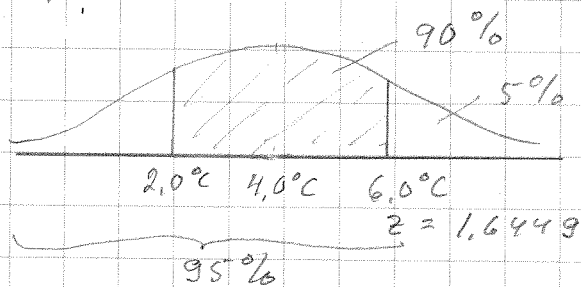 90%
5%
2,0°C 4,0°C 6,0°C
z = 1,6449
95%